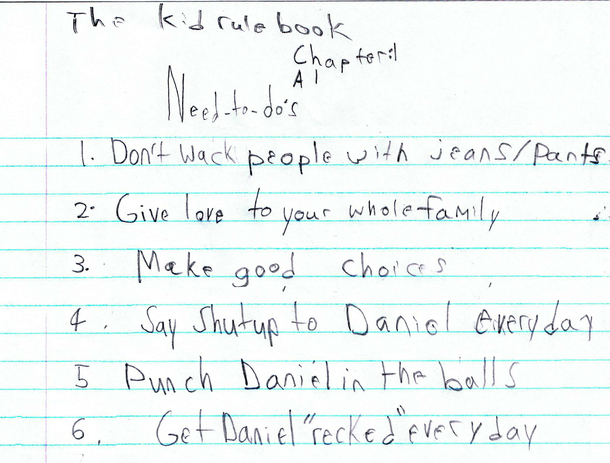 The kid rule book
Chapter:1
A1
Need-to-do's
1. Don't wack people with jeans/pants
2. Give love to your whole family
3. Make good choices
4. Say Shutup to Daniel everyday
5 Punch Daniel in the balls
6. Get Daniel "recked" everyday